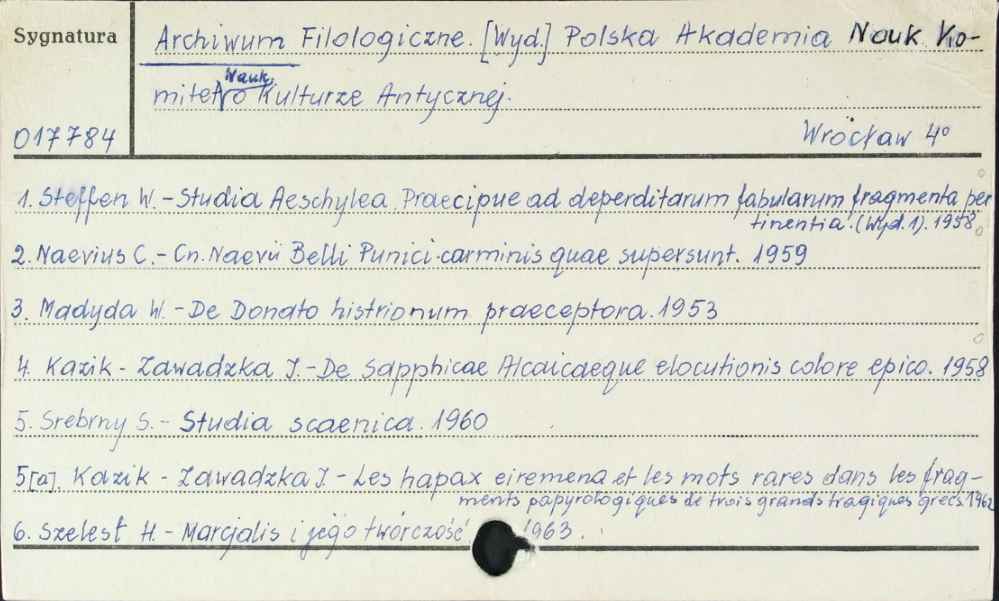 Sygnatura
Archiwum Filologiczne. [Wyd.] Polska Akademia Nauk. Ko-
mitet Nauk. o Kulturze Antycznej.
017784
Wrocław 4°
1. Steffen W. - Studia Aeschylea. Praecipue ad deperditarum fabularum fragmenta per
tinentia. (Wyd. 1). 1958.
2. Naevius C. - Cn. Naevii Belli Punici carminis quae supersunt. 1959
3. Madyda W. - De Donato histrionum praeceptora. 1953
4. Kazik - Zawadzka I. - De Sapphicae Alcaicaeque elocutionis colore epico. 1958
5. Srebrny S. - Studia scaenica. 1960
5[a]. Kazik - Zawadzka I. - Les hapax eiremena et les mots rares dans les frag-
ments papyrologiques de trois grands tragiques grecs. 1962
6. Szelest H. - Marcjalis i jego twórczość. 1963.